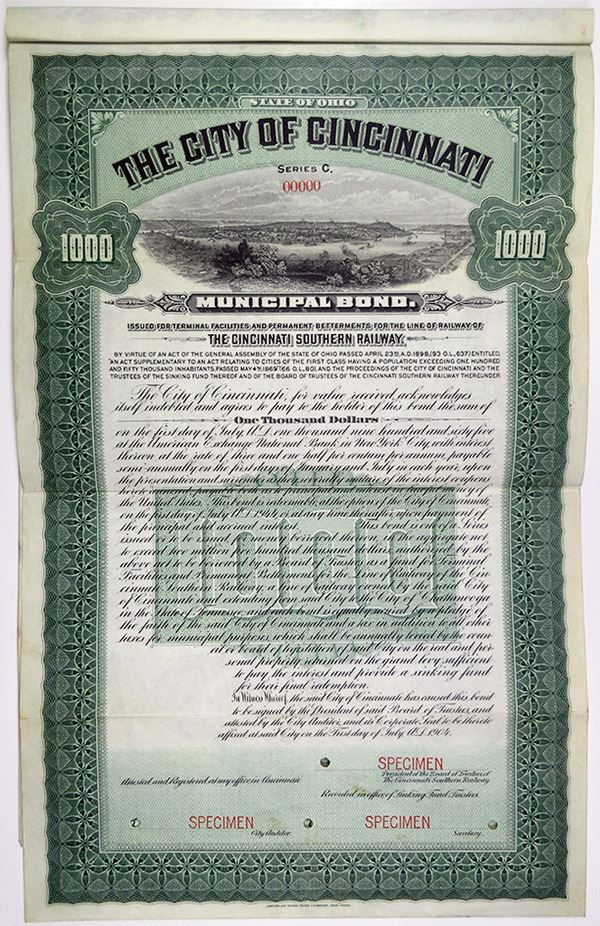 STATE OF OHIO
THE CITY OF CINCINNATI
SERIES C.
00000
1000 1000
MUNICIPAL BOND.
ISSUED FOR TERMINAL FACILITIES AND PERMANENT BETTERMENTS FOR THE LINE OF RAILWAY OF
THE CINCINNATI SOUTHERN RAILWAY.
BY VIRTUE OF AN ACT OF THE GENERAL ASSEMBLY OF THE STATE OF OHIO PASSED APRIL 23RD, A.D. 1898, (93 O.L., 637) ENTITLED,
"AN ACT SUPPLEMENTARY TO AN ACT RELATING TO CITIES OF THE FIRST CLASS HAVING A POPULATION EXCEEDING ONE HUNDRED
AND FIFTY THOUSAND INHABITANTS, PASSED MAY 4TH, 1869" (66 O.L., 80), AND THE PROCEEDINGS OF THE CITY OF CINCINNATI AND THE
TRUSTEES OF THE SINKING FUND THEREOF AND OF THE BOARD OF TRUSTEES OF THE CINCINNATI SOUTHERN RAILWAY THEREUNDER.
The City of Cincinnati, for value received, acknowledges
itself indebted and agrees to pay to the holder of this bond, the sum of
One Thousand Dollars
on the first day of July, A.D. one thousand nine hundred and sixty five
at the American Exchange National Bank in New York City, with interest
thereon at the rate of three and one half per centum per annum, payable
semi-annually on the first days of January and July in each year, upon
the presentation and surrender as they severally mature of the interest coupons
hereto annexed, payable both as to principal and interest in lawful money of
the United States. This bond is redeemable, at the option of the City of Cincinnati,
on the first day of July, A.D. 1944, or at any time thereafter, upon payment of
the principal and accrued interest. This bond is one of a Series
issued for the fund of money borrowed in the aggregate not
to exceed two million five hundred thousand dollars authorized by the
above act to be issued by said Board of Trustees as a fund for Terminal
Facilities and Permanent Betterments for the Line of Railway of the Cin-
cinnati Southern Railway, a line of railway owned by the City
of Cincinnati and extending from said City to the City of Chattanooga
in the State of Tennessee, and said bond is equally secured by a pledge of
the faith of the said City of Cincinnati and a tax in addition to all other
taxes for municipal purposes, which shall be annually levied by the coun-
cil or board of legislation of said City on the real and per-
sonal property returned on the grand levy sufficient
to pay the interest and provide a sinking fund
for their final redemption.
In Witness Whereof, the said City of Cincinnati has caused this bond
to be signed by the President of said Board of Trustees, and
attested by the City Auditor, and its Corporate Seal to be thereto
affixed at said City on the First day of July, A.D. 1904.
SPECIMEN
President of the Board of Trustees of
The Cincinnati Southern Railway.
Attested and Registered at my office in Cincinnati
Recorded in office of Sinking Fund Trustees.
SPECIMEN SPECIMEN
City Auditor. Secretary.
AMERICAN BANK NOTE COMPANY, NEW YORK.